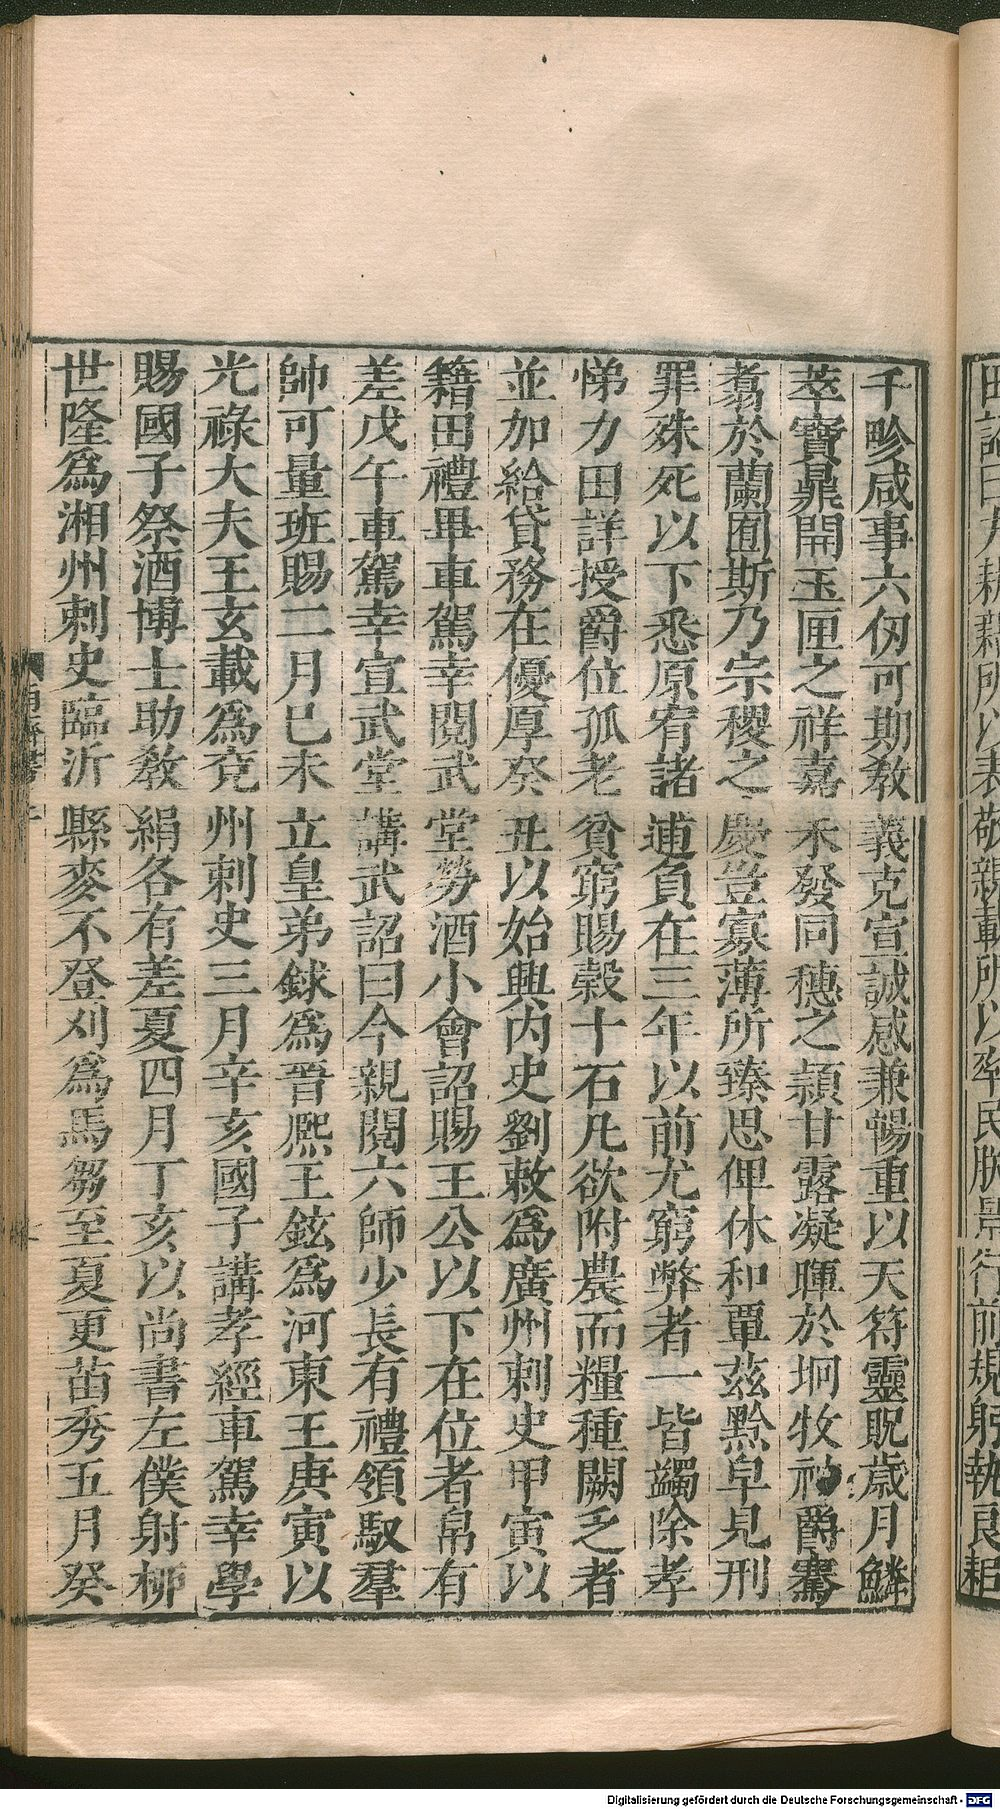 田詔曰夫耕籍所以表敬親載所以率民朕景行前規躬執良耜
千畛咸事六仞可期敎義克宣誠感兼暢重以天符靈貺歲月鱗
萃寶鼎開玉匣之祥嘉禾發同穗之穎甘露凝暉於坰牧神爵騫
翥於蘭囿斯乃宗稷之慶豈寡薄所臻思俾休和覃茲黔皁見刑
罪殊死以下悉原宥諸逋負在三年以前尤窮弊者一皆蠲除孝
悌力田詳授爵位孤老貧窮賜穀十石凡欲附農而糧種闕乏者
並加給貸務在優厚癸丑以始興內史劉敕爲廣州刺史甲寅以
籍田禮畢車駕幸閱武堂勞酒小會詔賜王公以下在位者帛有
差戊午車駕幸宣武堂講武詔曰今親閱六師少長有禮領馭羣
帥可量班賜二月己未立皇弟銶爲晉熙王鉉爲河東王庚寅以
光祿大夫王玄載爲兗州刺史三月辛亥國子講孝經車駕幸學
賜國子祭酒博士助敎絹各有差夏四月丁亥以尚書左僕射柳
世隆爲湘州刺史臨沂縣麥不登刈爲馬芻至夏更苗秀五月癸
南齊書
Digitalisierung gefördert durch die Deutsche Forschungsgemeinschaft - DFG